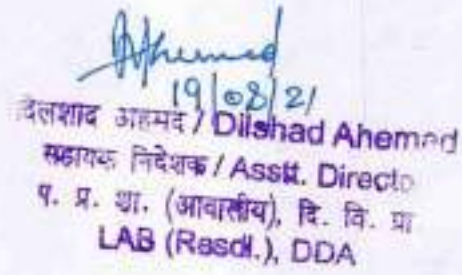 Ahemed
19/08/21
दिलशाद अहमद / Dilshad Ahemed
सहायक निदेशक / Asstt. Directo
प. प्र. शा. (आवासीय), दि. वि. प्रा
LAB (Resdl.), DDA